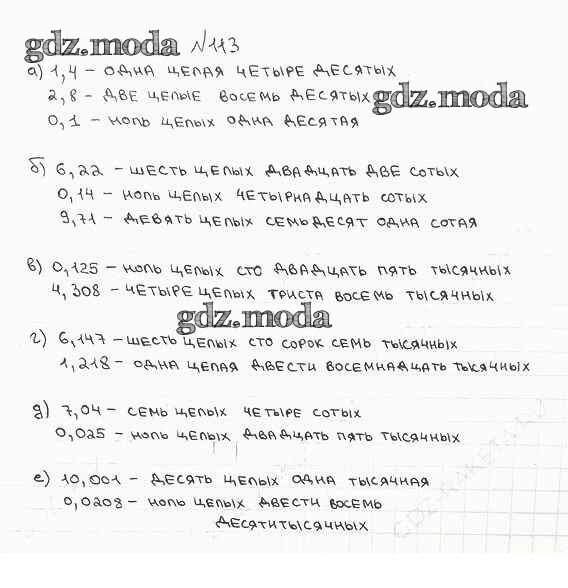 gdz.moda №113
а) 1,4 – одна целая четыре десятых
2,8 – две целые восемь десятых gdz.moda
0,1 – ноль целых одна десятая
б) 6,22 – шесть целых двадцать две сотых
0,14 – ноль целых четырнадцать сотых
9,71 – девять целых семьдесят одна сотая
в) 0,125 – ноль целых сто двадцать пять тысячных
4,308 – четыре целых триста восемь тысячных
gdz.moda
г) 6,147 – шесть целых сто сорок семь тысячных
1,218 – одна целая двести восемнадцать тысячных
д) 7,04 – семь целых четыре сотых
0,025 – ноль целых двадцать пять тысячных
е) 10,001 – десять целых одна тысячная
0,0208 – ноль целых двести восемь
десятитысячных